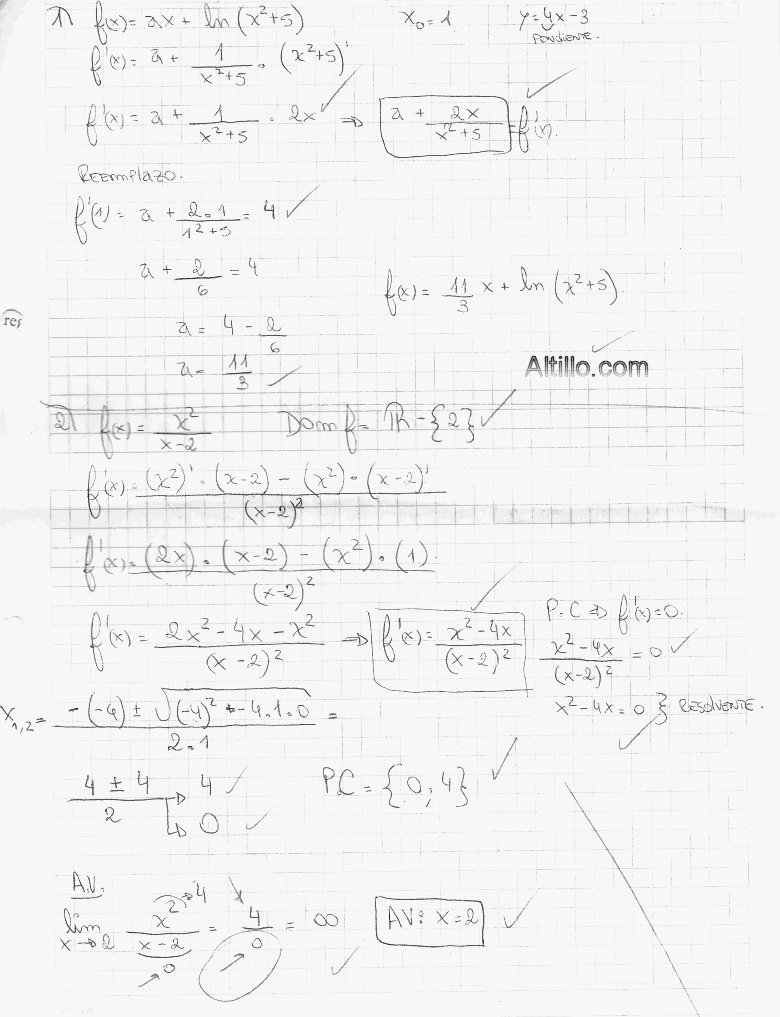 1) f(x) = ax + ln (x²+5)   x₀ = 1   y = 4x - 3
PENDIENTE.
f'(x) = a + 1/(x²+5) . (x²+5)'
f'(x) = a + 1/(x²+5) . 2x ⇒ a + 2x/(x²+5) = f'(x).
Reemplazo.
f'(1) = a + 2.1/(1²+5) = 4
a + 2/6 = 4
f(x) = 11/3 x + ln (x²+5)
res
a = 4 - 2/6
a = 11/3
Altillo.com
2) f(x) = x²/(x-2)   Dom f = R - {2}
f'(x) = ((x²)' . (x-2) - (x²) . (x-2)')/(x-2)²
f'(x) = ((2x) . (x-2) - (x²) . (1))/(x-2)²
f'(x) = (2x² - 4x - x²)/(x-2)² ⇒ f'(x) = (x² - 4x)/(x-2)²
P.C ⇒ f'(x) = 0.
(x² - 4x)/(x-2)² = 0
x² - 4x = 0 } RESOLVENTE.
x₁,₂ = (-(-4) ± √((-4)² - 4.1.0))/2.1 =
(4 ± 4)/2 → 4
↳ 0
P.C = {0, 4}
A.V.
lim x→2 x²/(x-2) = 4/0 = ∞   AV: x = 2
→ 4
→ 0